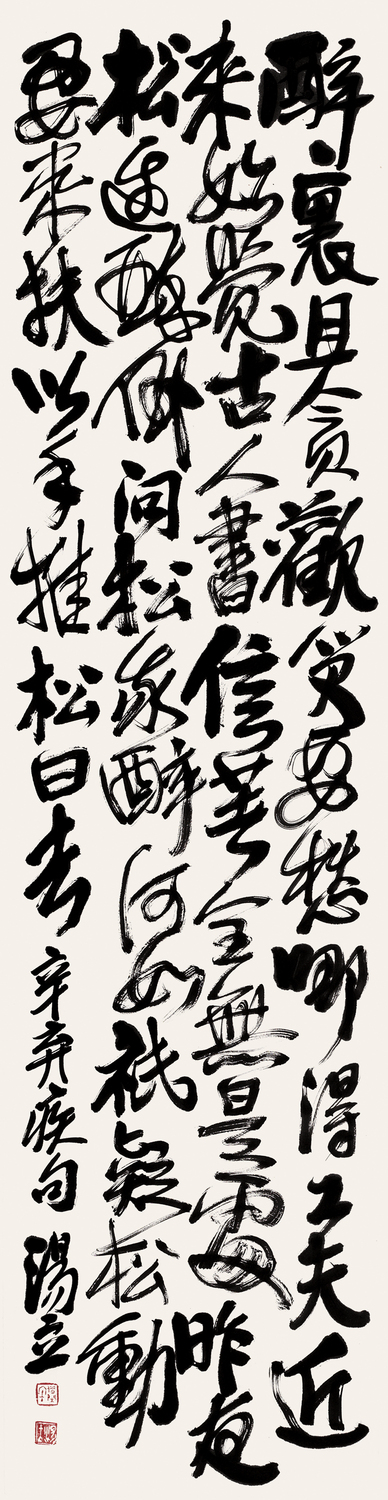 醉裏且貪歡笑要愁哪得工夫近
来始覺古人書信著全無是處昨夜
松邊醉倒問松我醉何如祇疑松動
要来扶以手推松曰去 辛弃疾句 湯立